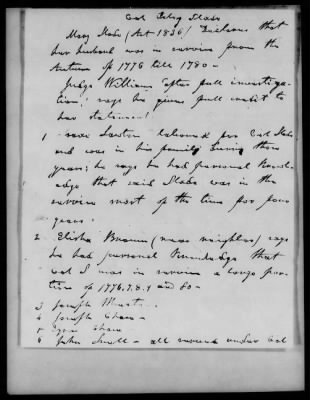 Col Peleg Slade
Mary Slade (Act 1836) Declares that
her husband was in service from the
Autumn of 1776 till 1780 -
Judge Williams "after full investiga-
tion", says he gives full credit to
her statement.
1 Lawton labored for Col Slade
and was in his family during those
years; he says he had personal Knowl-
edge that said Slade was in the
service most of the time for four
years.
2 Elisha Brown (near neighbor) says
he had personal Knowledge that
Col S was in service a large por-
tion of 1776.7.8.9 and 80 -
3 Joseph
4 Joseph Chace -
5 Chace -
6 John Small - all served under Col